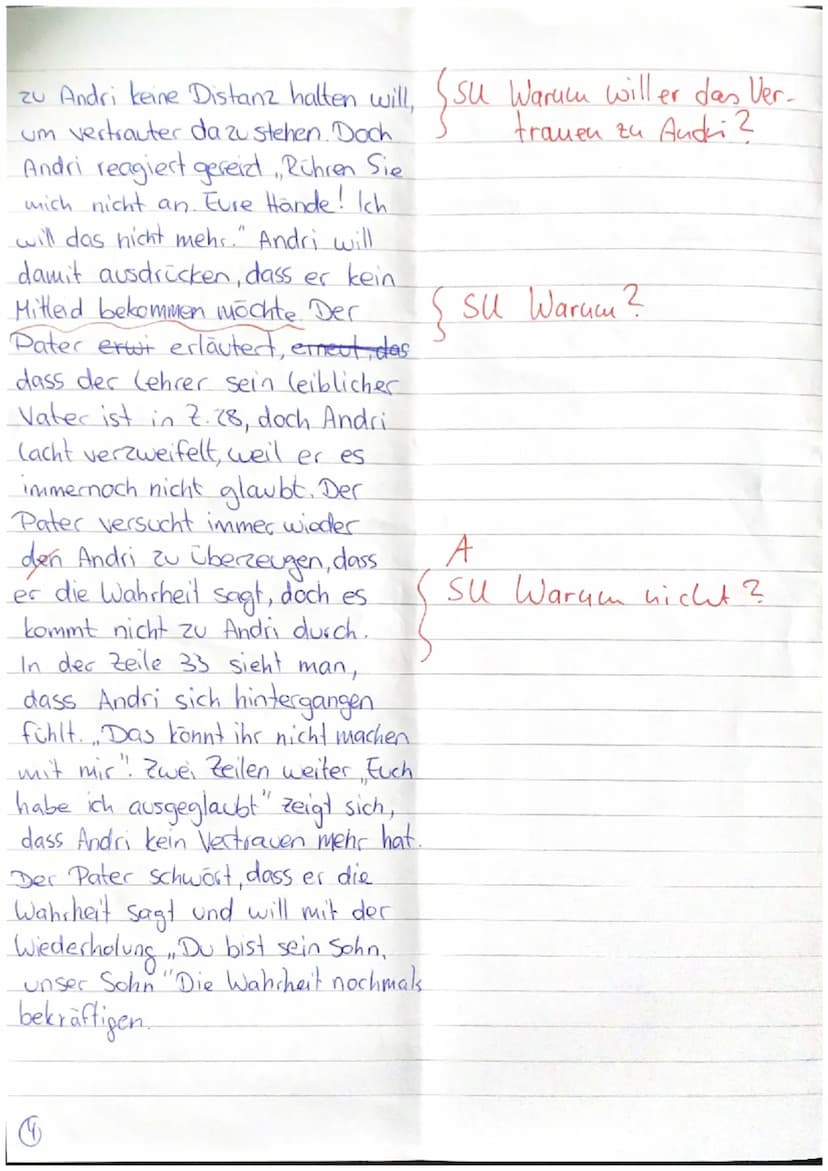 zu Andri keine Distanz halten will,
um vertrauter dazustehen. Doch
Andri reagiert gereizt „Rühren Sie
mich nicht an. Eure Hände! Ich
will das nicht mehr." Andri will
damit ausdrücken, dass er kein
Mitleid bekommen möchte. Der
Pater erwi erläutert, erneut, das
dass der Lehrer sein leiblicher
Vater ist in Z. 28, doch Andri
lacht verzweifelt, weil er es
immernoch nicht glaubt. Der
Pater versucht immer wieder
den Andri zu überzeugen, dass
er die Wahrheit sagt, doch es
kommt nicht zu Andri durch.
In der Zeile 33 sieht man,
dass Andri sich hintergangen
fühlt. „Das könnt ihr nicht machen
mit mir". Zwei Zeilen weiter „Euch
habe ich ausgeglaubt" zeigt sich,
dass Andri kein Vertrauen mehr hat.
Der Pater schwört, dass er die
Wahrheit sagt und will mit der
Wiederholung „Du bist sein Sohn,
unser Sohn" Die Wahrheit nochmals
bekräftigen.
4
SU Warum will er das Ver-
trauen zu Andri?
SU Warum?
A
SU Warum nicht?